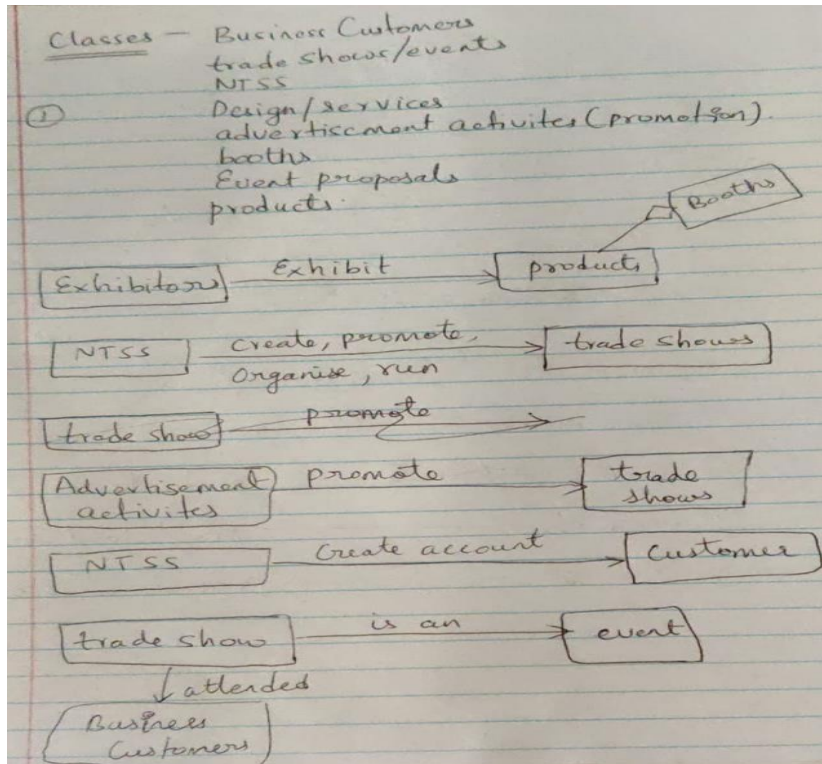 Classes - Business Customers
trade shows/events
NTSS
① Design/services
advertisement activites (promotion).
booths
Event proposals
products.
Booths
Exhibitors Exhibit products
NTSS Create, promote, trade shows
Organise, run
trade show promote
Advertisement promote trade
activites shows
NTSS Create account Customer
trade show is an event
attended
Business
Customers